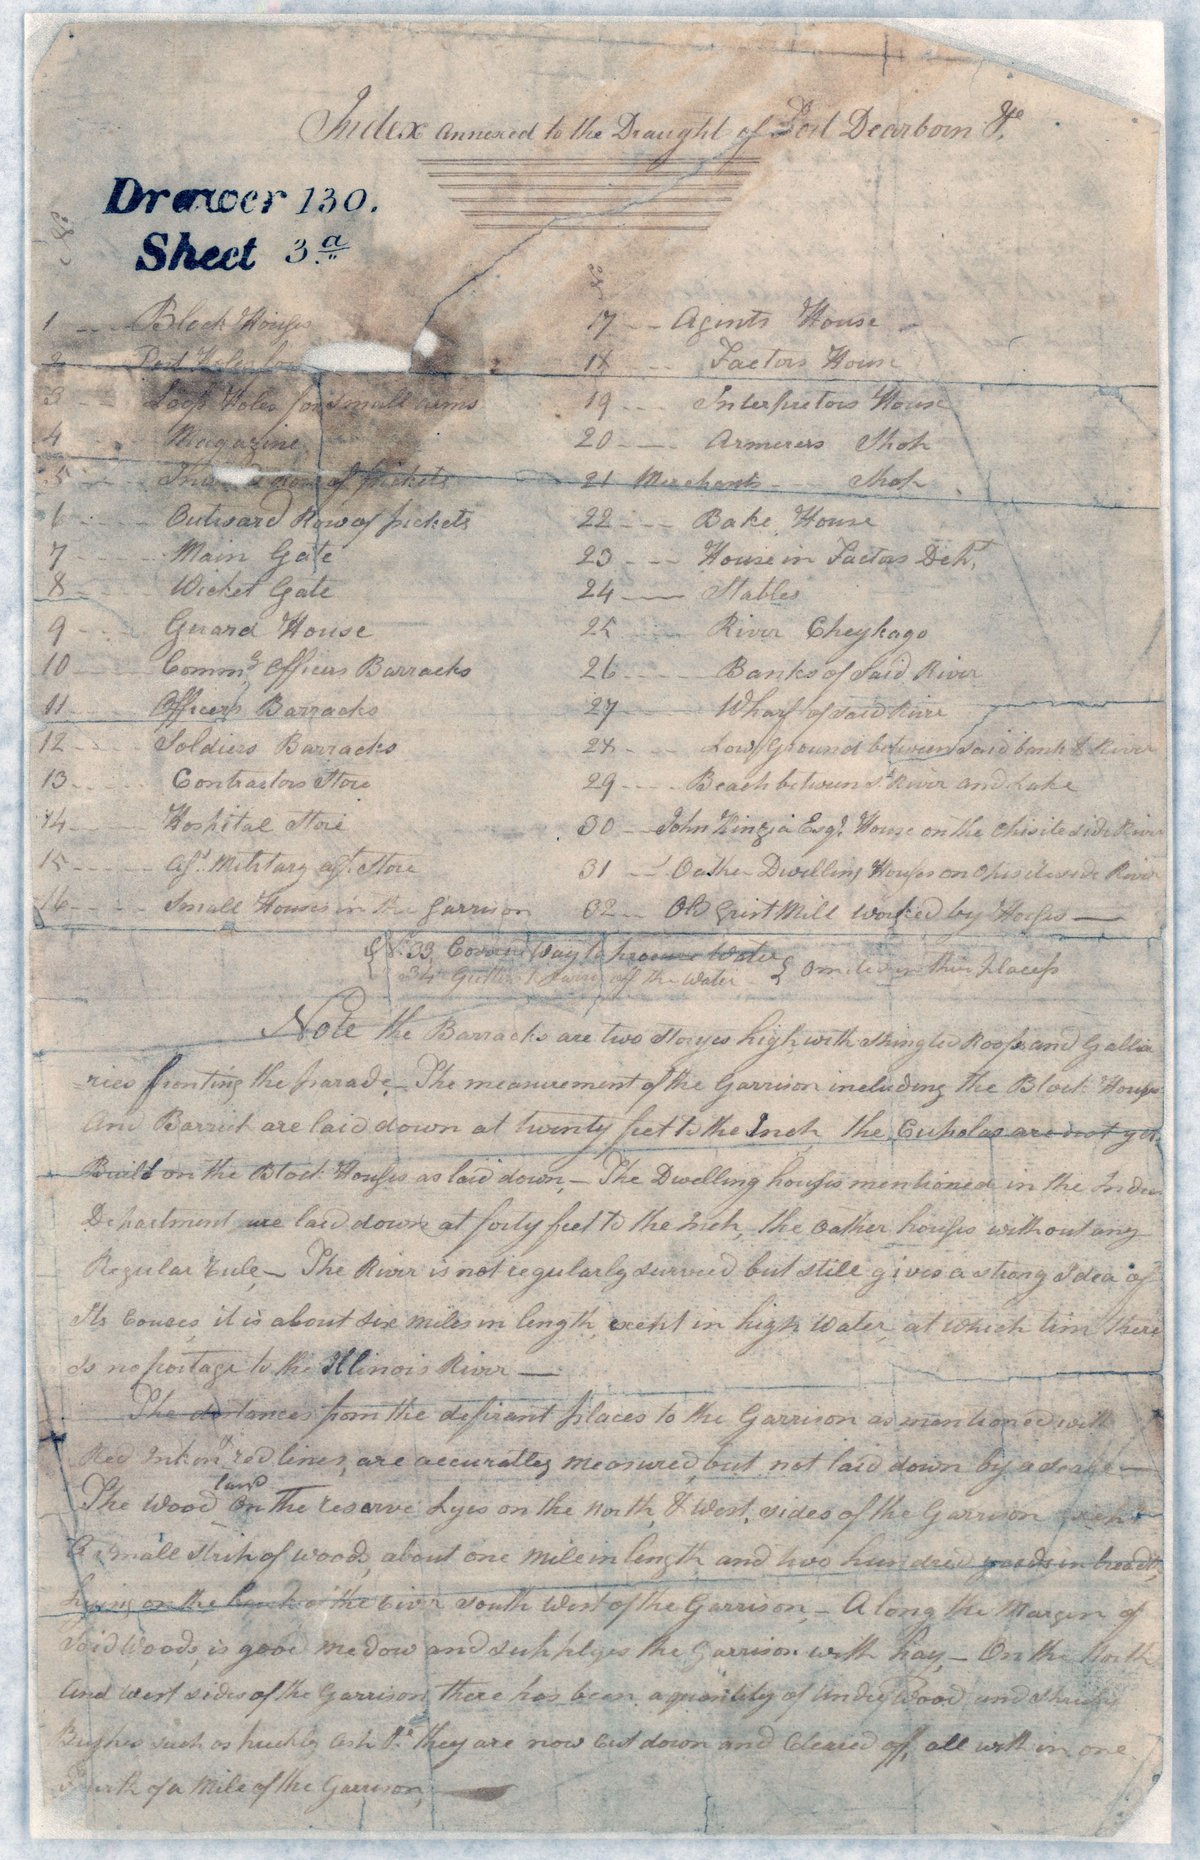 Index annexed to the Draught of Fort Dearborn &c.
Drawer 130.
Sheet 3a
No.
No.
1 Block Houses
2 Port Holes for
3 Loop Holes for Small arms
4 Magazine
5 row of pickets
6 Outward Row of pickets
7 Main Gate
8 Wicket Gate
9 Guard House
10 Commg. Officers Barracks
11 Officers Barracks
12 Soldiers Barracks
13 Contractors Store
14 Hospital Store
15 Ast. Military agt. Store
16 Small Houses in the Garrison
17 Agents House
18 Factors House
19 Interpretors House
20 Armerers Shop
21 Merchants Shop
22 Bake House
23 House in Factors Dept.
24 Stables
25 River Cheykago
26 Banks of Said River
27 Wharf of said River
28 Low Ground between said bank & River
29 Beach between sd. River and Lake
30 John Kinzia Esqr. House on the opisite side River
31 Oather Dwelling Houses on opisite side River
32 Old Grist Mill worked by Horses
No. 33 Covered Way to procure Water
34 Gutters to Carry off the water } Omited in their places
Note the Barracks are two Storyes high, with Shingled Roofs and Galla
ries fronting the parade. The measurement of the Garrison including the Block Houses
And Barrick are laid down at twenty feet to the Inch the Cupolas are not yet
Built on the Block Houses as laid down, The Dwelling houses mentioned in the Indian
Department are laid down at forty feet to the Inch, the Oather houses without any
Regular rule, The River is not regularly surveed but still gives a strong Idea of
Its Courses, it is about six miles in length, except in high Water, at which time there
Is no portage to the Illinois River
The distances from the defirant places to the Garrison as mentioned with
Red Ink on ye red lines, are accuratley measured, but not laid down by a scale
The wood land on the reserve Lyes on the North & West sides of the Garrison
A Small Strip of woods, about one mile in length, and two hundred yards in breadth,
Lying on the bank of the River South West of the Garrison, Along the Margin of
Said Woods, is good medow and supplyes the Garrison with hay, On the North
And West sides of the Garrison there has been a quantity of under Wood and Shruby
Bushes such as prickly Ash &c they are now cut down and Cleared off, all with in one
Fourth of a Mile of the Garrison,